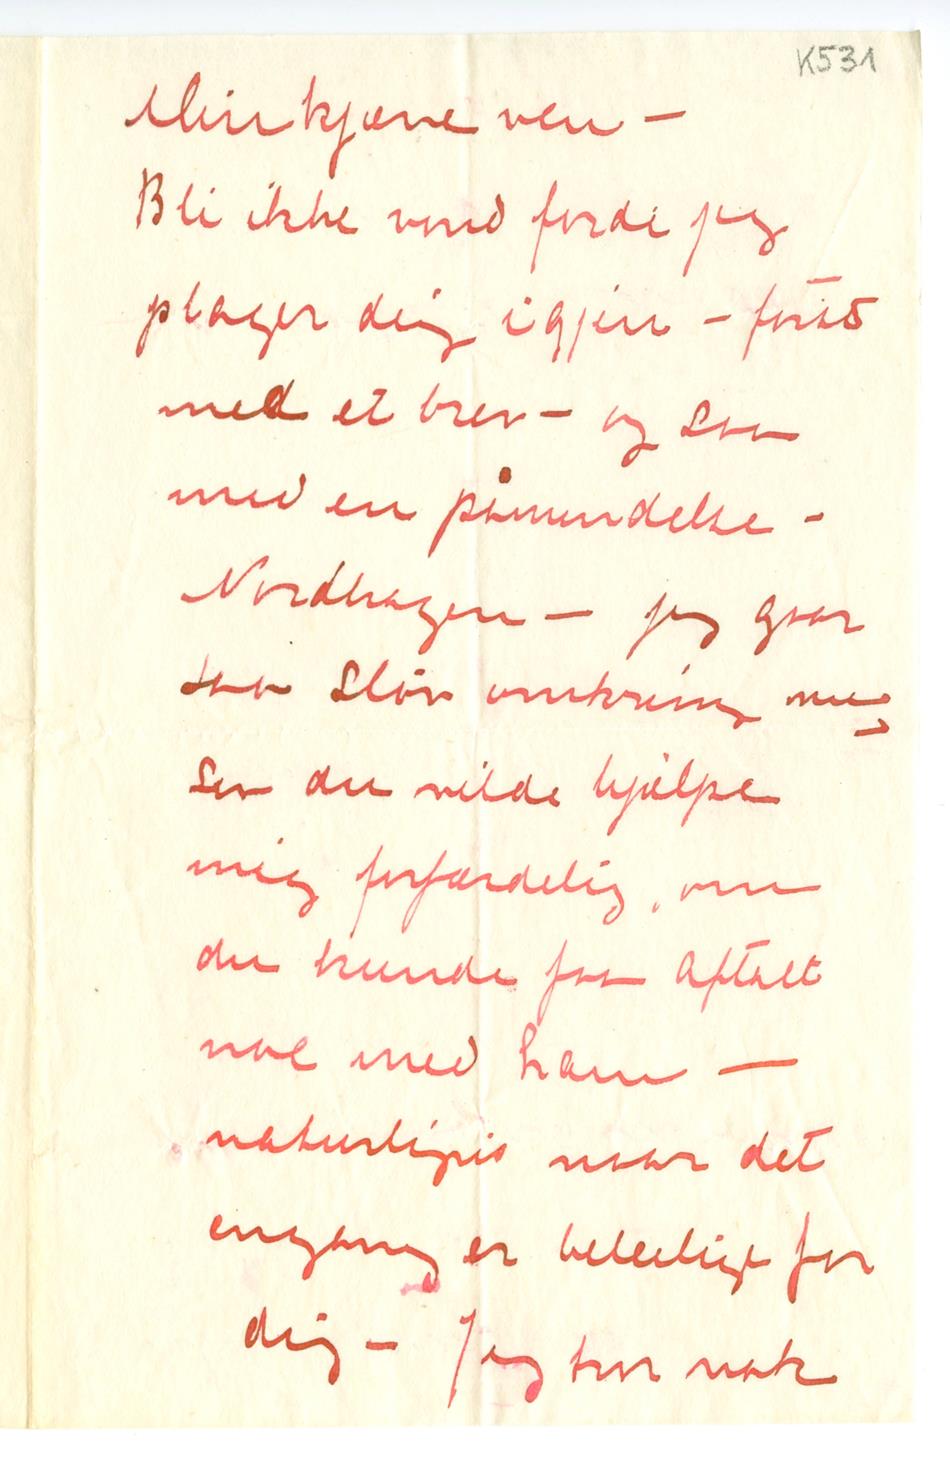 K531
Min kjære ven —
Bli ikke vond fordi jeg
plager dig igjen — først
med et brev — og saa
med en påmindelse —
Nordhagen — jeg gaar
saa sløv omkring nu,
ser du vilde hjælpe
mig forfærdelig, om
du kunde faa aftalt
noe med ham —
naturligvis naar det
engang er beleiligt for
dig — Jeg tror nok